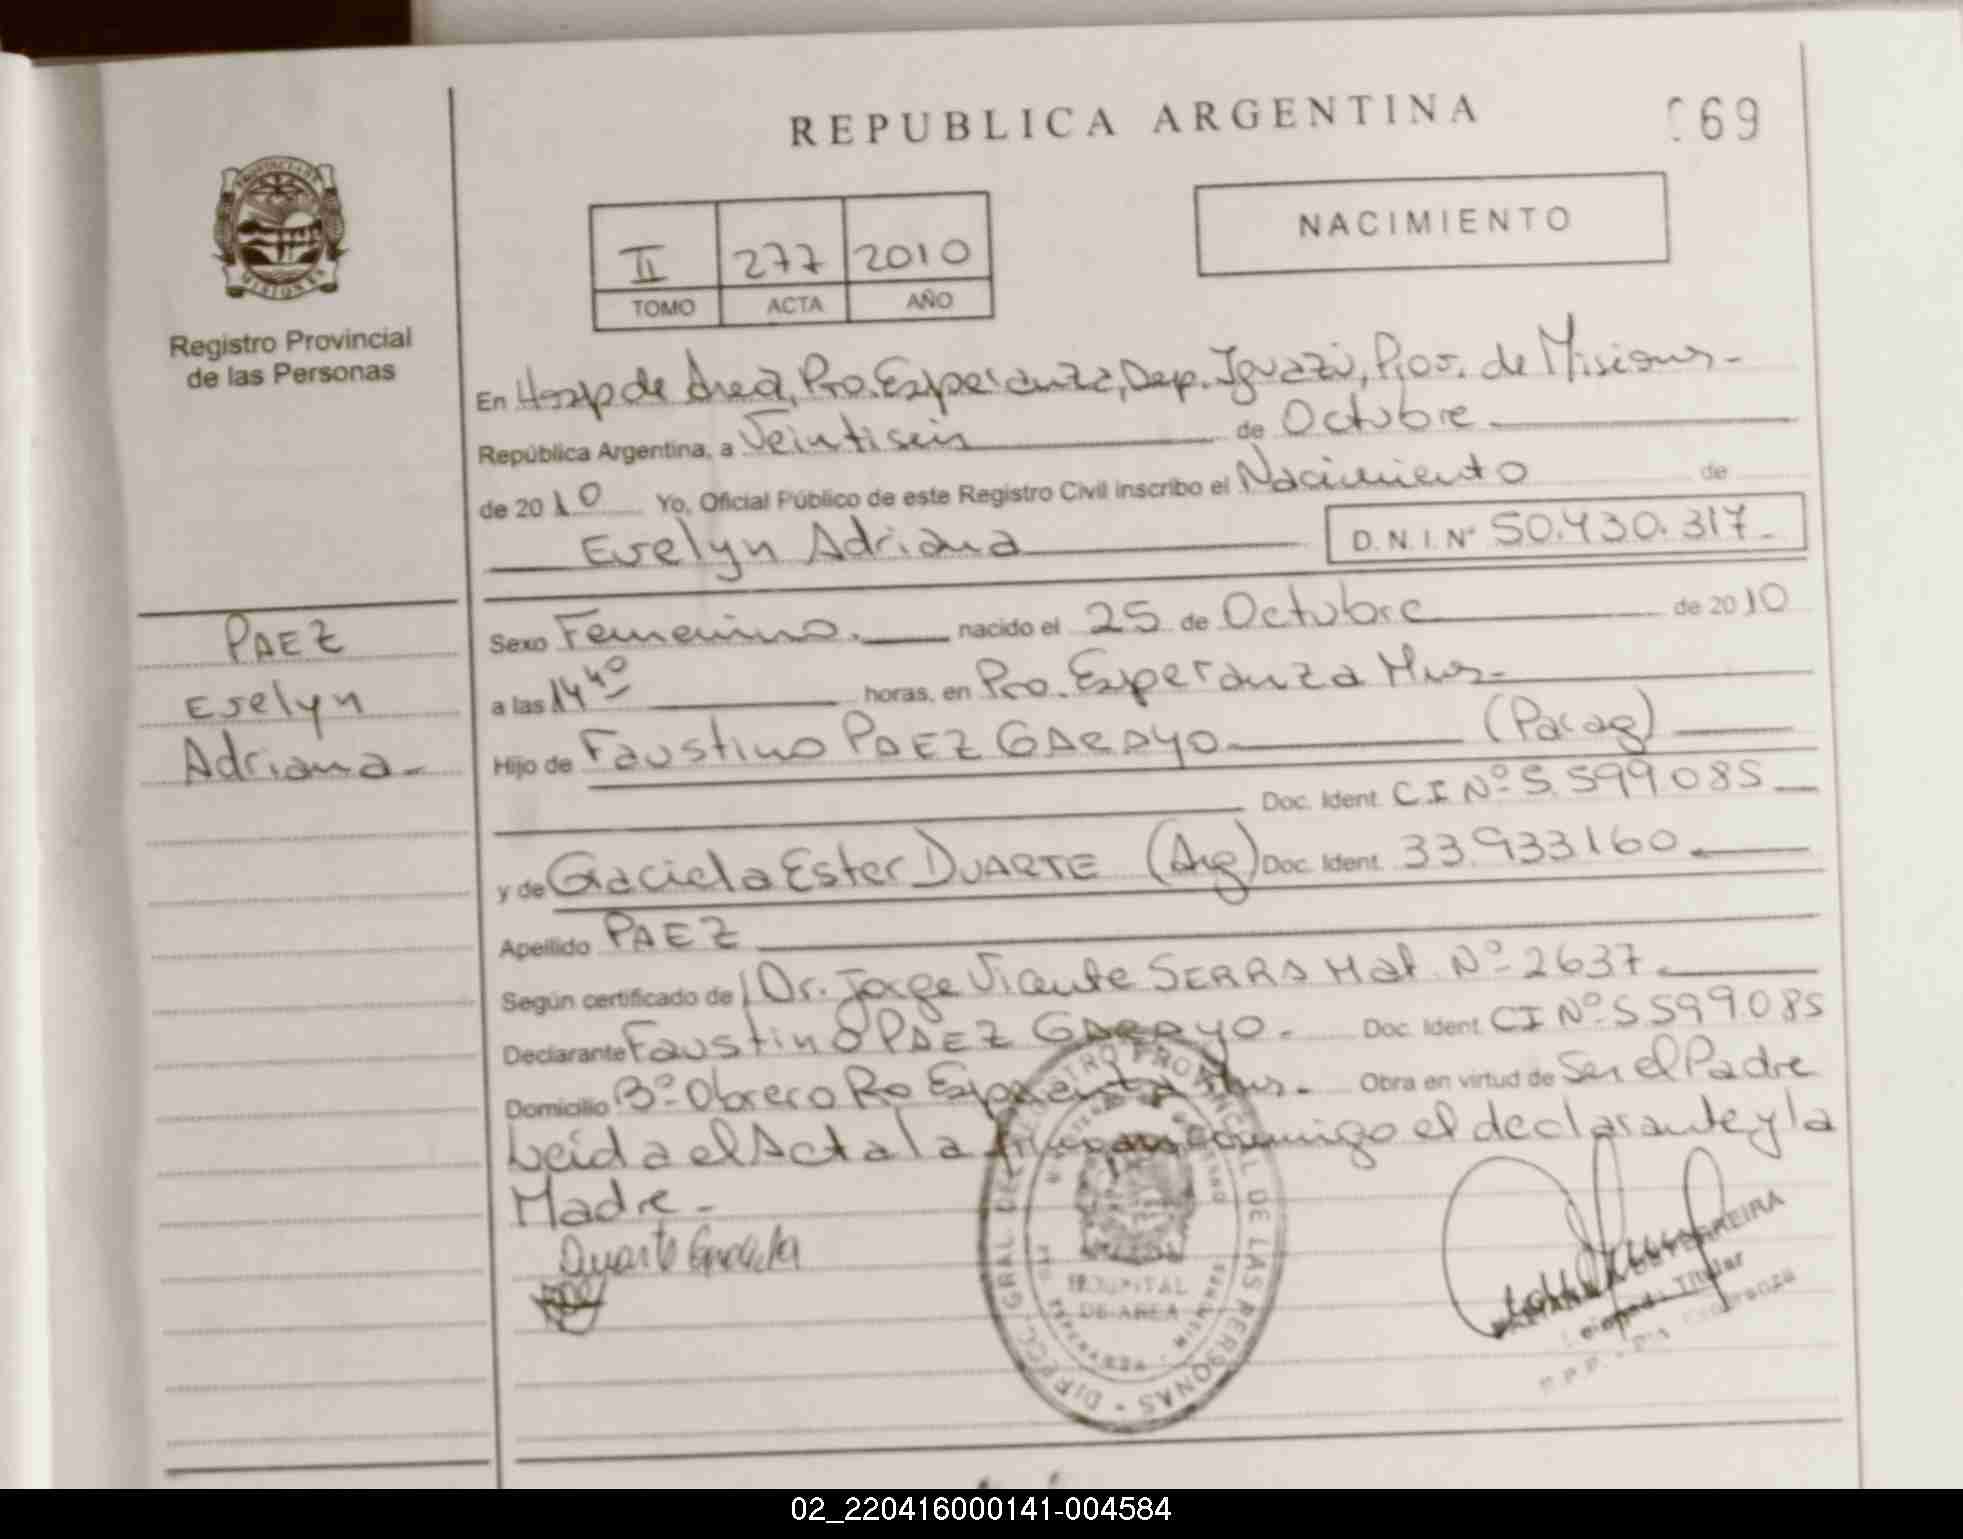 REPUBLICA ARGENTINA
69
NACIMIENTO
II 277 2010
TOMO ACTA AÑO
Registro Provincial
de las Personas
En Hosp de Area, Pto. Esperanza, Dep. Iguazú, Prov. de Misiones-
República Argentina, a Veintiseis de Octubre
de 2010 Yo, Oficial Público de este Registro Civil inscribo el Nacimiento de
Evelyn Adriana D.N.I. Nº 50.430.317-
PAEZ
Evelyn
Adriana-
Sexo Femenino. nacido el 25 de Octubre de 2010
a las 14 40 horas, en Pto. Esperanza Mnes-
Hijo de Faustino PAEZ GARAYO (Parag)
Doc. Ident. CI Nº 5.599.085
y de Graciela Ester DUARTE (Arg) Doc. Ident. 33.933160
Apellido PAEZ
Según certificado de Dr. Jorge Vicente SERRA Mat. Nº 2637
Declarante Faustino PAEZ GARAYO. Doc. Ident CI Nº 5.599.085
Domicilio Bº Obrero Pto Esperanza Mnes. Obra en virtud de Ser el Padre
Leida el Acta la firman conmigo el declarante y la
Madre-
Duarte Graciela
DIRECC. GRAL DEL REGISTRO PROVINCIAL DE LAS PERSONAS
HOSPITAL
DE AREA
PTO. ESPERANZA
Titular
02_220416000141-004584